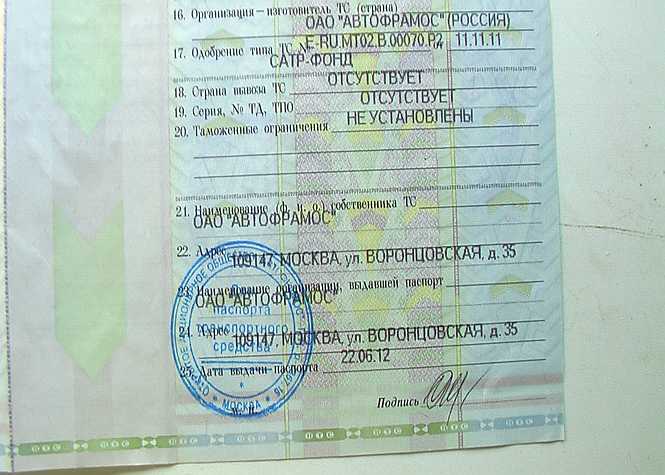 16. Организация—изготовитель ТС (страна)
ОАО "АВТОФРАМОС" (РОССИЯ)
17. Одобрение типа ТС № E-RU.MT02.B.00070.P2, 11.11.11
САТР-ФОНД
18. Страна вывоза ТС ОТСУТСТВУЕТ
19. Серия, № ТД, ТПО ОТСУТСТВУЕТ
20. Таможенные ограничения НЕ УСТАНОВЛЕНЫ
21. Наименование (ф. и. о.) собственника ТС
ОАО "АВТОФРАМОС"
22. Адрес
109147, МОСКВА, ул. ВОРОНЦОВСКАЯ, д. 35
23. Наименование организации, выдавшей паспорт
ОАО "АВТОФРАМОС"
24. Адрес
109147, МОСКВА, ул. ВОРОНЦОВСКАЯ, д. 35
22.06.12
25. Дата выдачи паспорта
паспорта
транспортного
средства
* МОСКВА *
М. П.
Подпись
ПТС ПТС ПТС ПТС ПТС ПТС